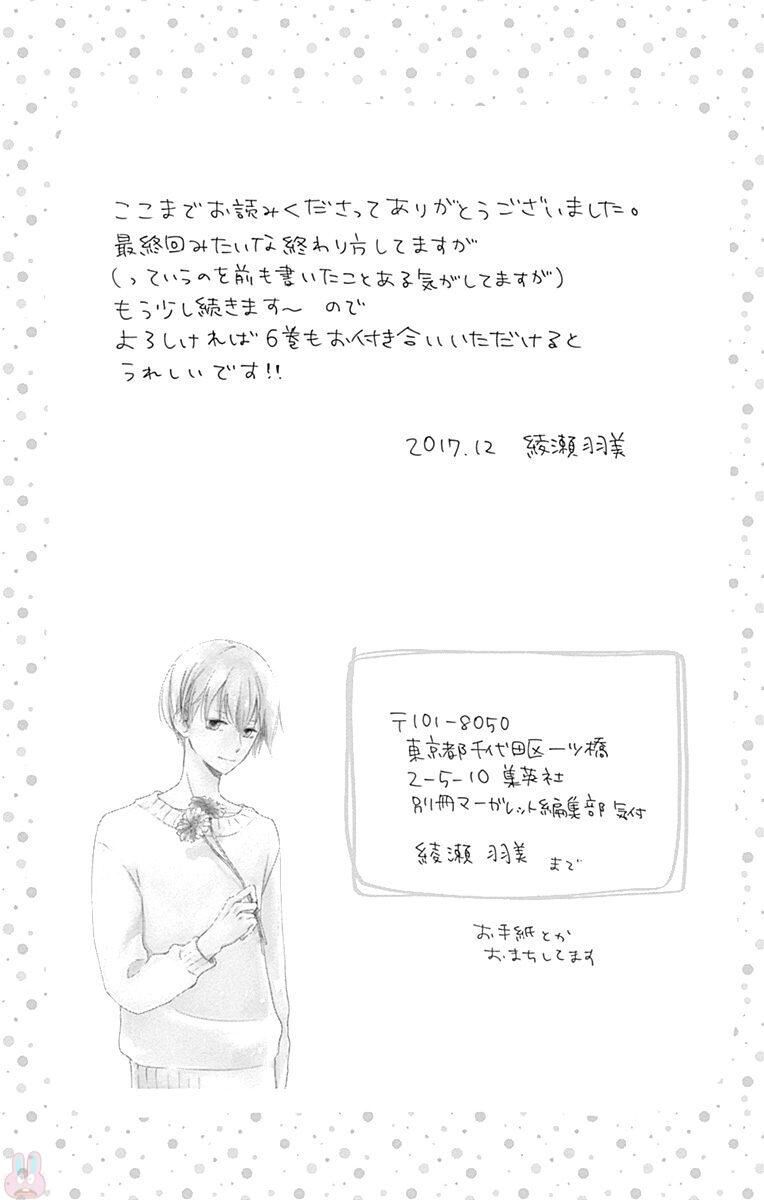 ここまでお読みくださってありがとうございました。
最終回みたいな終わり方してますが
(っていうのを前も書いたことある気がしてますが)
もう少し続きます〜 ので
よろしければ6巻もお付き合いいただけると
うれしいです!!
2017.12 綾瀬羽美
〒101-8050
東京都千代田区一ツ橋
2-5-10 集英社
別冊マーガレット編集部 気付
綾瀬 羽美 まで
お手紙とか
おまちしてます